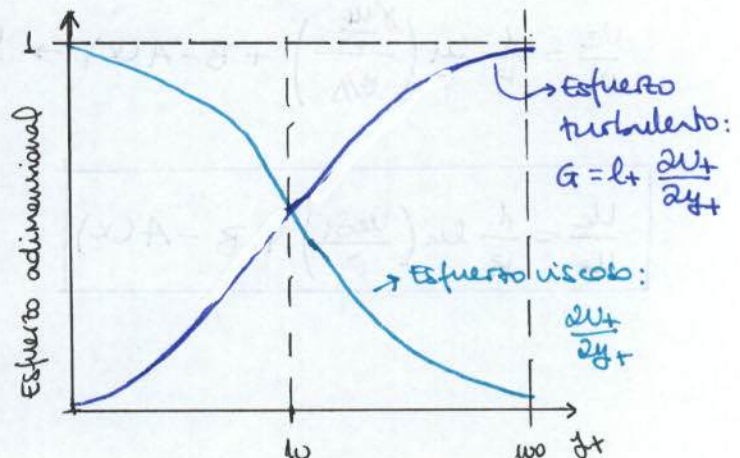 1
Esfuerzo adimensional
Esfuerzo
turbulento:
G = l+ ∂U+/∂y+
Esfuerzo viscoso:
∂U+/∂y+
10
100
y+